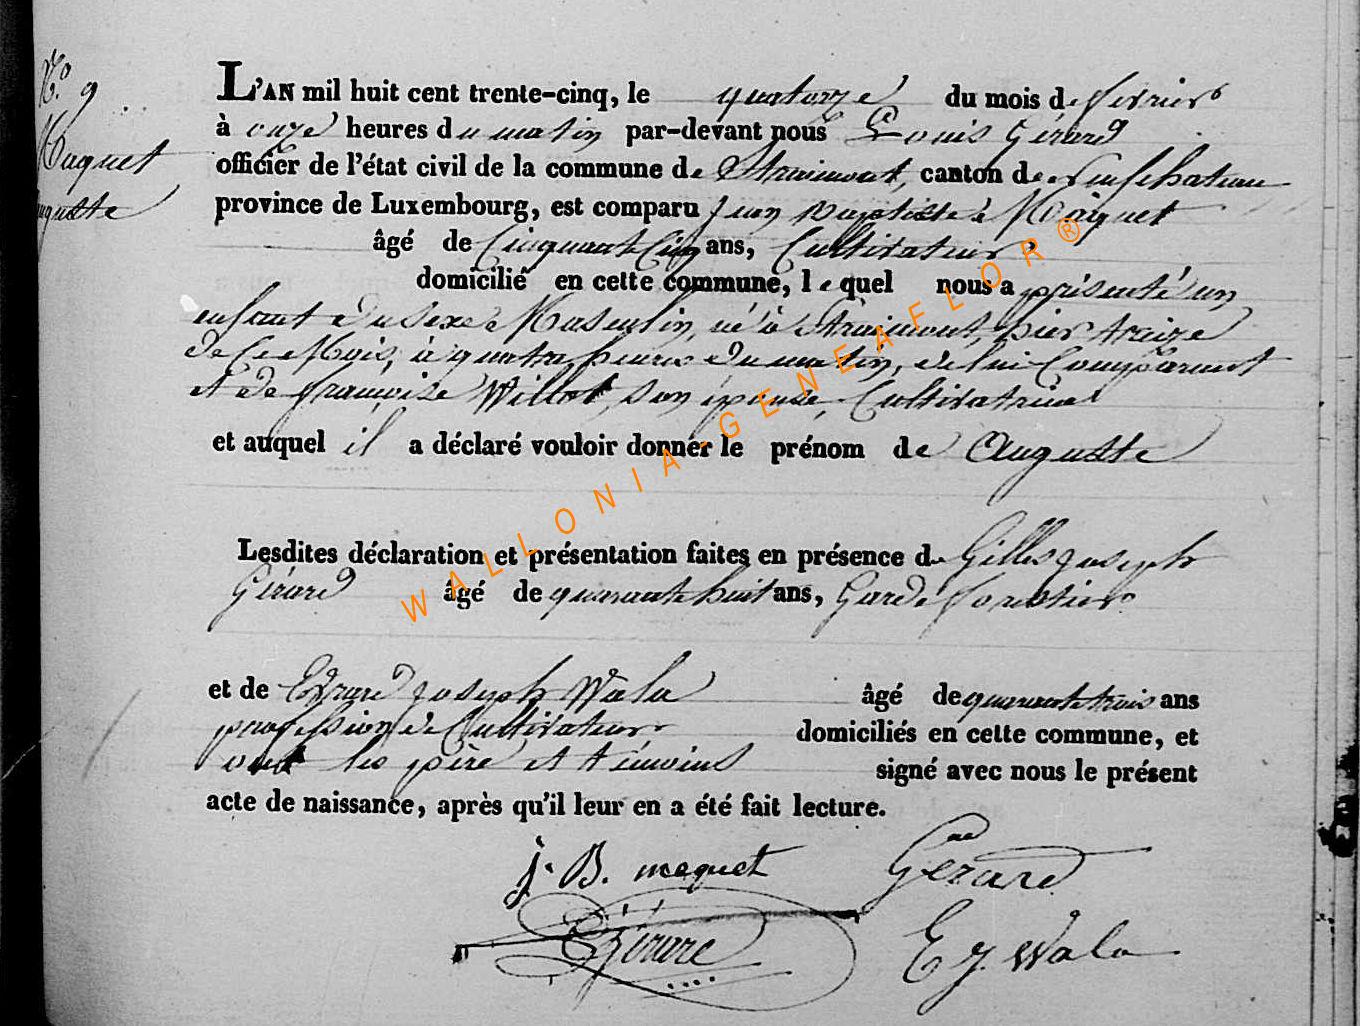 N.o 9
Maquet
Auguste
L'AN mil huit cent trente-cinq, le quatorze du mois de fevrier
à onze heures du matin par-devant nous Louis Gérard
officier de l'état civil de la commune de Straimont, canton de neufchateau
province de Luxembourg, est comparu Jean Baptiste Maquet
âgé de Cinquante Cinq ans, Cultivateur
domicilié en cette commune, lequel nous a présenté un
enfant du Sexe Masculin, né à Straimont, hier treize
de Ce Mois, à quatre heures du matin, de lui Comparant
et de françoise Willot, son épouse, Cultivatrice
et auquel il a déclaré vouloir donner le prénom de Auguste
Lesdites déclaration et présentation faites en présence de Gilles Joseph
Gérard âgé de quarante huit ans, Garde forestier
et de Evrard Joseph Wala âgé de quarante trois ans
profession de Cultivateur domiciliés en cette commune, et
ont les père et témoins signé avec nous le présent
acte de naissance, après qu'il leur en a été fait lecture.
j. B. maquet Gérard
Gérard E J. Wala
WALLONIA-GENEAFLOR®